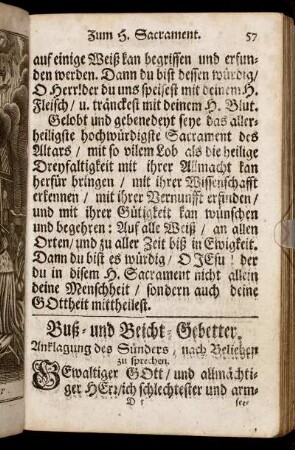 Zum H. Sacrament. 57
auf einige Weiß kan begriffen und erfun-
den werden. Dann du bist dessen würdig/
O HErr! der du uns speisest mit deinem H.
Fleisch/ u. tränckest mit deinem H. Blut.
Gelobt und gebenedeyt seye das aller-
heiligste hochwürdigste Sacrament des
Altars / mit so vilem Lob als die heilige
Dreyfaltigkeit mit ihrer Allmacht kan
herfür bringen / mit ihrer Wissenschafft
erkennen / mit ihrer Vernunfft erfinden/
und mit ihrer Gütigkeit kan wünschen
und begehren: Auf alle Weiß / an allen
Orten/ und zu aller Zeit biß in Ewigkeit.
Dann du bist es würdig / O JEsu! der
du in disem H. Sacrament nicht allein
deine Menschheit / sondern auch deine
GOttheit mittheilest.
Buß- und Beicht-Gebetter.
Anklagung des Sünders, nach Belieben
zu sprechen.
GEwaltiger GOtt/ und allmächti-
ger HErr/ ich schlechtester und arm-
D 5 see-